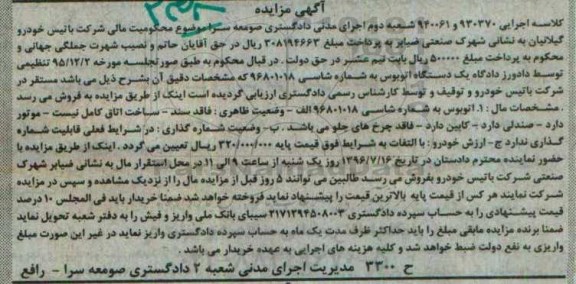 آگهی مزایده
کلاسه اجرایی ۹۳۰۳۷۰ و ۹۴۰۰۶۱ شعبه دوم اجرای مدنی دادگستری صومعه سرا موضوع محکومیت مالی شرکت باتیس خودرو
گیلانیان به نشانی شهرک صنعتی ضیابر به پرداخت مبلغ ۳۰۸۱۹۴۶۶۳ ریال در حق آقایان حاتم و نصیب شهرت جملگی جهانی و
محکوم به پرداخت مبلغ ۵۰۰۰۰۰ ریال بابت نیم عشر در حق دولت . در قبال محکوم به طبق صورتجلسه مورخه ۹۵/۱۲/۲ تنظیمی
توسط دادورز دادگاه یک دستگاه اتوبوس به شماره شاسی ۹۶۸۰۱۰۱۸ که مشخصات دقیق آن بشرح ذیل می باشد مستقر در
شرکت باتیس خودرو و توقیف و توسط کارشناس رسمی دادگستری ارزیابی گردیده است اینک از طریق مزایده به فروش می رسد
. مشخصات مال : ۱. اتوبوس به شماره شاسی ۹۶۸۰۱۰۱۸ الف - وضعیت ظاهری : فاقد سند - ساخت اتاق کامل نیست - موتور
دارد - صندلی دارد - کابین دارد - فاقد چرخ های جلو می باشد . ب - وضعیت شماره گذاری : در شرایط فعلی قابلیت شماره
گذاری ندارد ج - ارزش خودرو : با التفات به شرایط فوق قیمت پایه ۳۲۰/۰۰۰/۰۰۰ ریال تعیین می گردد . اینک از طریق مزایده با
حضور نماینده محترم دادستان در تاریخ ۱۳۹۶/۷/۱۶ روز یک شنبه از ساعت ۹ الی ۱۱ در محل استقرار مال به نشانی ضیابر شهرک
صنعتی شرکت باتیس خودرو بفروش می رسد . طالبین می توانند ۵ روز قبل از مزایده مال را از نزدیک مشاهده و سپس در مزایده
شرکت نمایند هر کس از قیمت پایه بالاترین قیمت را پیشنهاد نماید فروخته خواهد شد ضمنا خریدار باید فی المجلس ۱۰ درصد
قیمت پیشنهادی را به حساب سپرده دادگستری ۲۱۷۱۲۹۴۵۰۸۰۰۳ سیبای بانک ملی واریز و فیش را به دفتر شعبه تحویل نماید
ضمنا برنده مزایده مابقی مبلغ را باید حداکثر ظرف مدت یک ماه به حساب سپرده دادگستری واریز نماید در غیر این صورت مبلغ
واریزی به نفع دولت ضبط خواهد شد و کلیه هزینه های اجرایی به عهده خریدار می باشد .
ح ۳۳۰۰ مدیریت اجرای مدنی شعبه ۲ دادگستری صومعه سرا - رافع